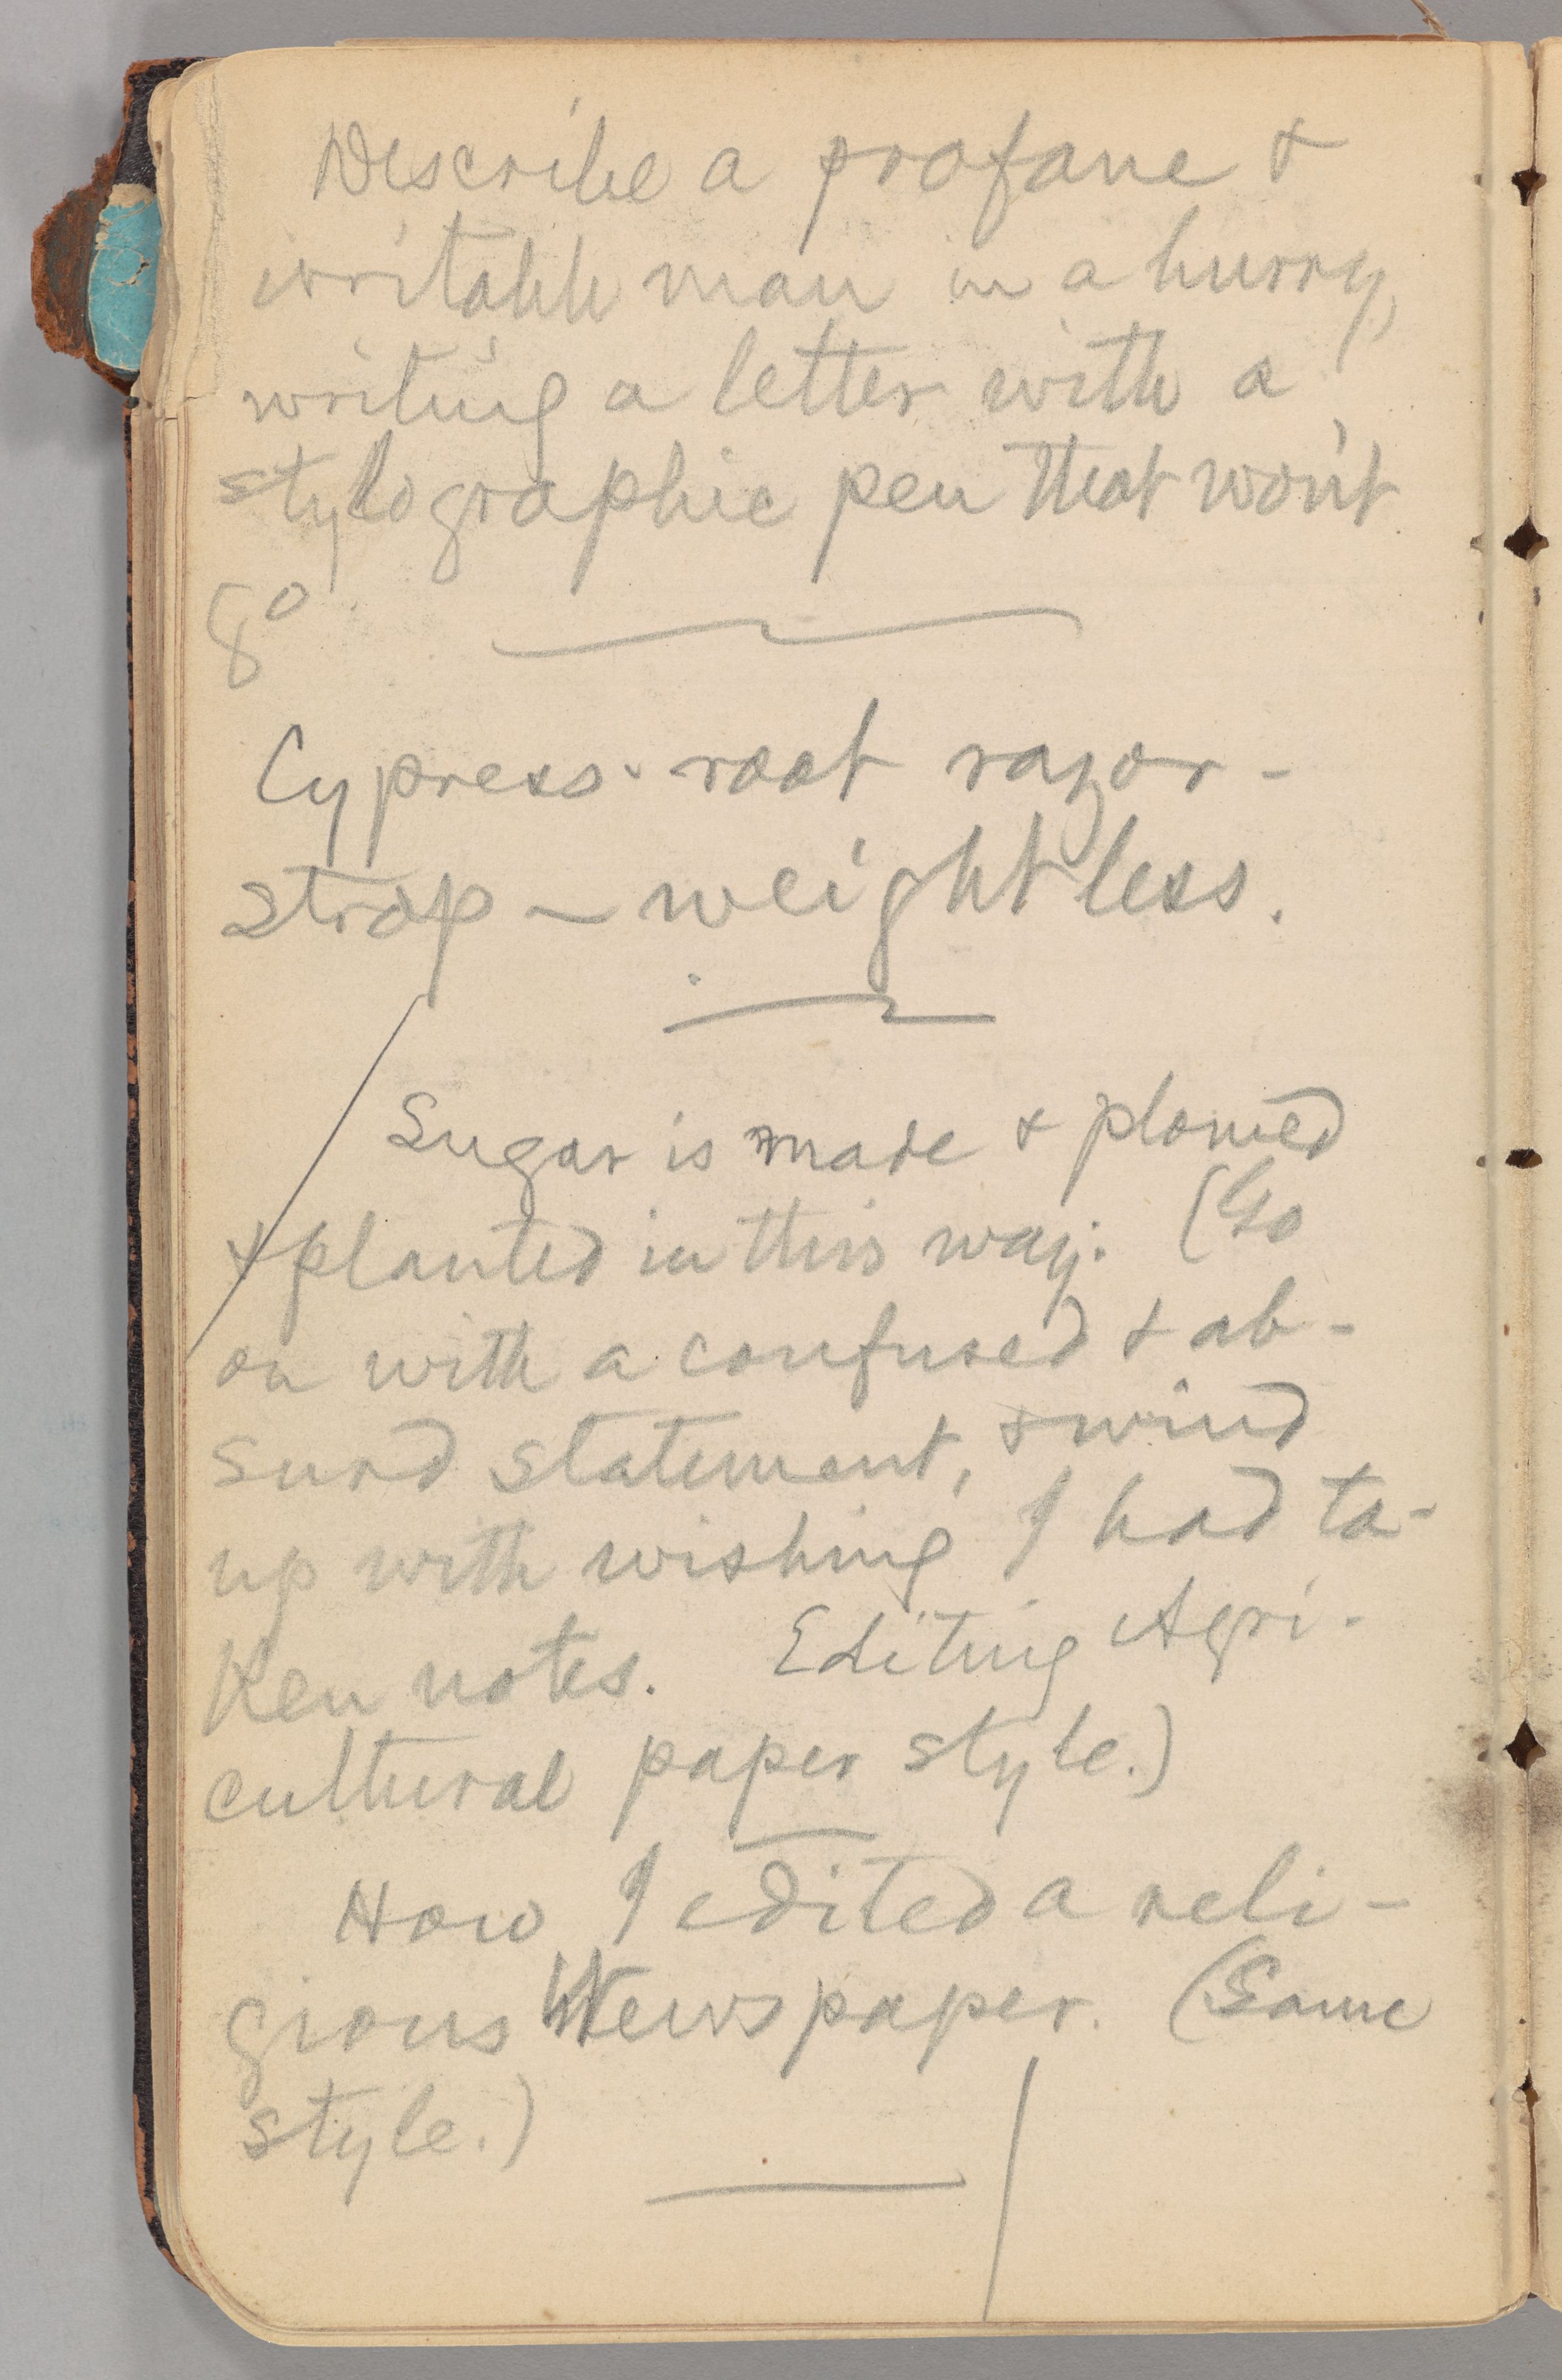 Describe a profane &
irritable man in a hurry,
writing a letter with a
stylographic pen that won't
go.
Cypress-root razor-
strop — weightless.
Sugar is made & plowed
& planted in this way: (Go
on with a confused & ab-
surd statement, & wind
up with wishing I had ta-
ken notes. Editing Agri-
cultural paper style.)
How I edited a reli-
gious Newspaper. (Same
style.)